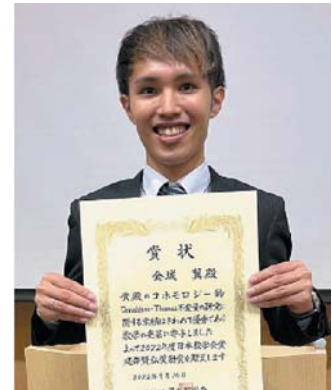 賞状
金城 翼殿
貴殿のコホモロジー的
Donaldson-Thomas不変量の研究に
関する業績はきわめて優秀であり
数学の発展に寄与しました
よって2022年度日本数学会賞
建部賢弘奨励賞を贈呈します
2022年9月14日